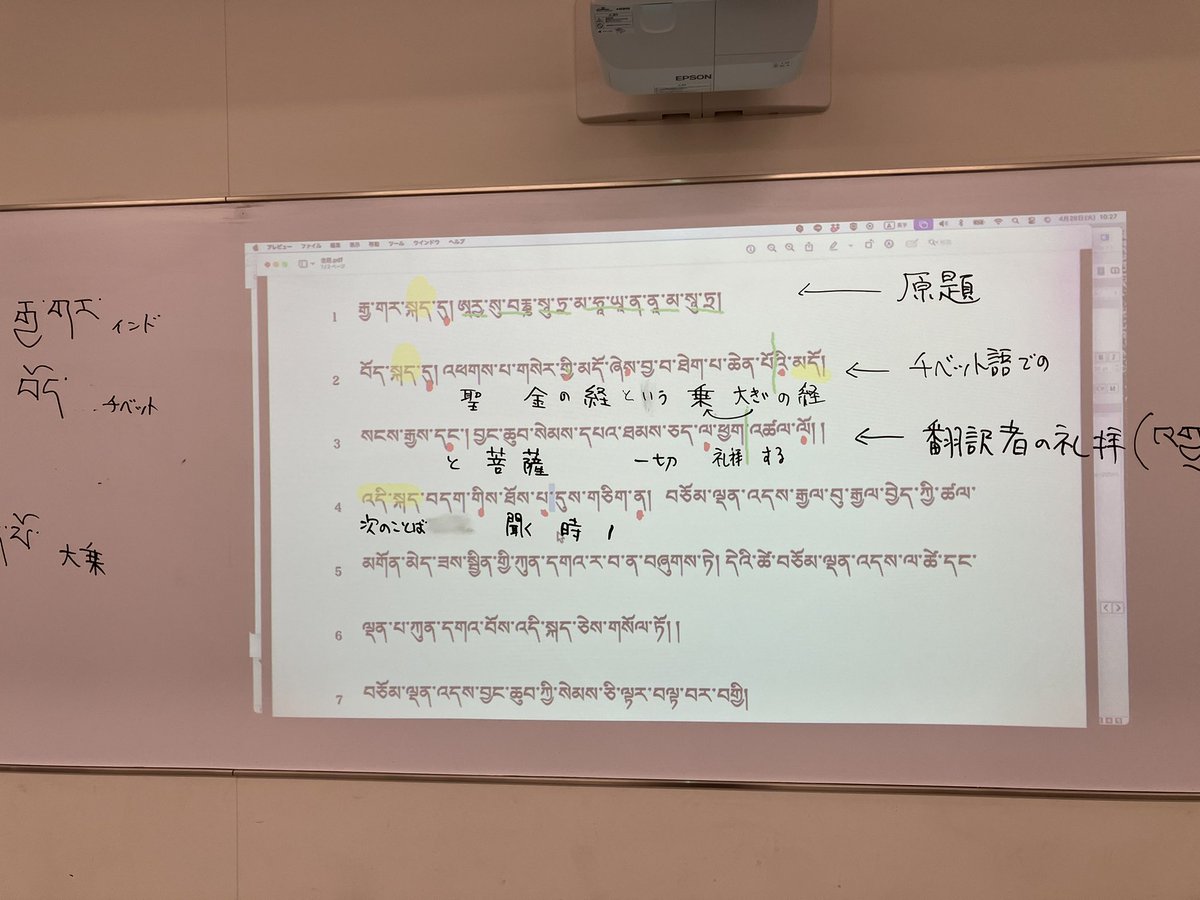 EPSON
プレビュー ファイル 編集 表示 移動 ツール ウインドウ ヘルプ
4月28日(火) 10:27
1 རྒྱ་གར་སྐད་དུ། ཨཱརྱ་སུ་བརྞྞ་སཱུ་ཏྲ་མ་ཧཱ་ཡཱ་ན་ནཱ་མ་སཱུ་ཏྲ།
← 原題
རྒྱ་གར་ インド
2 བོད་སྐད་དུ། འཕགས་པ་གསེར་གྱི་མདོ་ཞེས་བྱ་བ་ཐེག་པ་ཆེན་པོའི་མདོ།
← チベット語での
聖 金の経という 乗 大きいの経
བོད་ チベット
3 སངས་རྒྱས་དང་། བྱང་ཆུབ་སེམས་དཔའ་ཐམས་ཅད་ལ་ཕྱག་འཚལ་ལོ། །
← 翻訳者の礼拝
と 菩薩 一切 礼拝 する
4 འདི་སྐད་བདག་གིས་ཐོས་པ་དུས་གཅིག་ན། བཅོམ་ལྡན་འདས་རྒྱལ་བུ་རྒྱལ་བྱེད་ཀྱི་ཚལ་
次のことば 聞く 時 1
大乗
5 མགོན་མེད་ཟས་སྦྱིན་གྱི་ཀུན་དགའ་ར་བ་ན་བཞུགས་ཏེ། དེའི་ཚེ་བཅོམ་ལྡན་འདས་ལ་ཚེ་དང་
6 ལྡན་པ་ཀུན་དགའ་བོས་འདི་སྐད་ཅེས་གསོལ་ཏོ། །
7 བཅོམ་ལྡན་འདས་བྱང་ཆུབ་ཀྱི་སེམས་ཅི་ལྟར་བལྟ་བར་བགྱི།